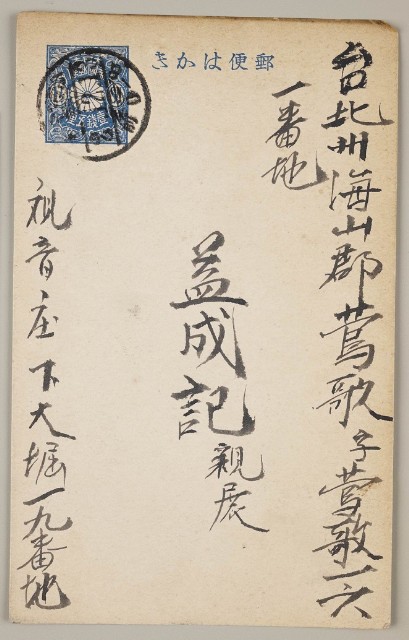 郵便はかき
台北州海山郡鶯歌字鶯歌一六
一番地
益成記
親展
観音庄下大堀一九番地